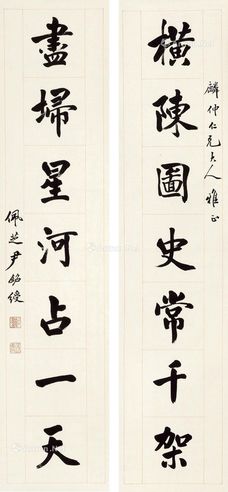 麟仲仁兄大人雅正
橫陳圖史常千架
盡埽星河占一天
佩芝尹銘綬